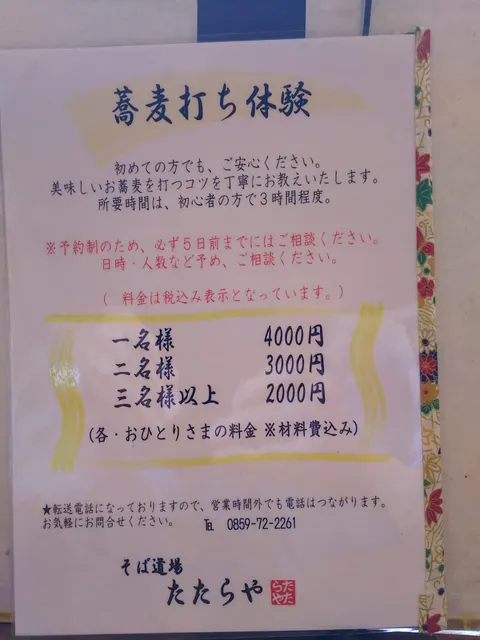 蕎麦打ち体験
初めての方でも、ご安心ください。
美味しいお蕎麦を打つコツを丁寧にお教えいたします。
所要時間は、初心者の方で３時間程度。
※予約制のため、必ず５日前までにはご相談ください。
日時・人数など予め、ご相談ください。
（ 料金は税込み表示となっています。）
一名様 4000円
二名様 3000円
三名様以上 2000円
(各・おひとりさまの料金 ※材料費込み)
★転送電話になっておりますので、営業時間外でも電話はつながります。
お気軽にお問合せください。 ℡ 0859-72-2261
そば道場
たたらや
たたらや